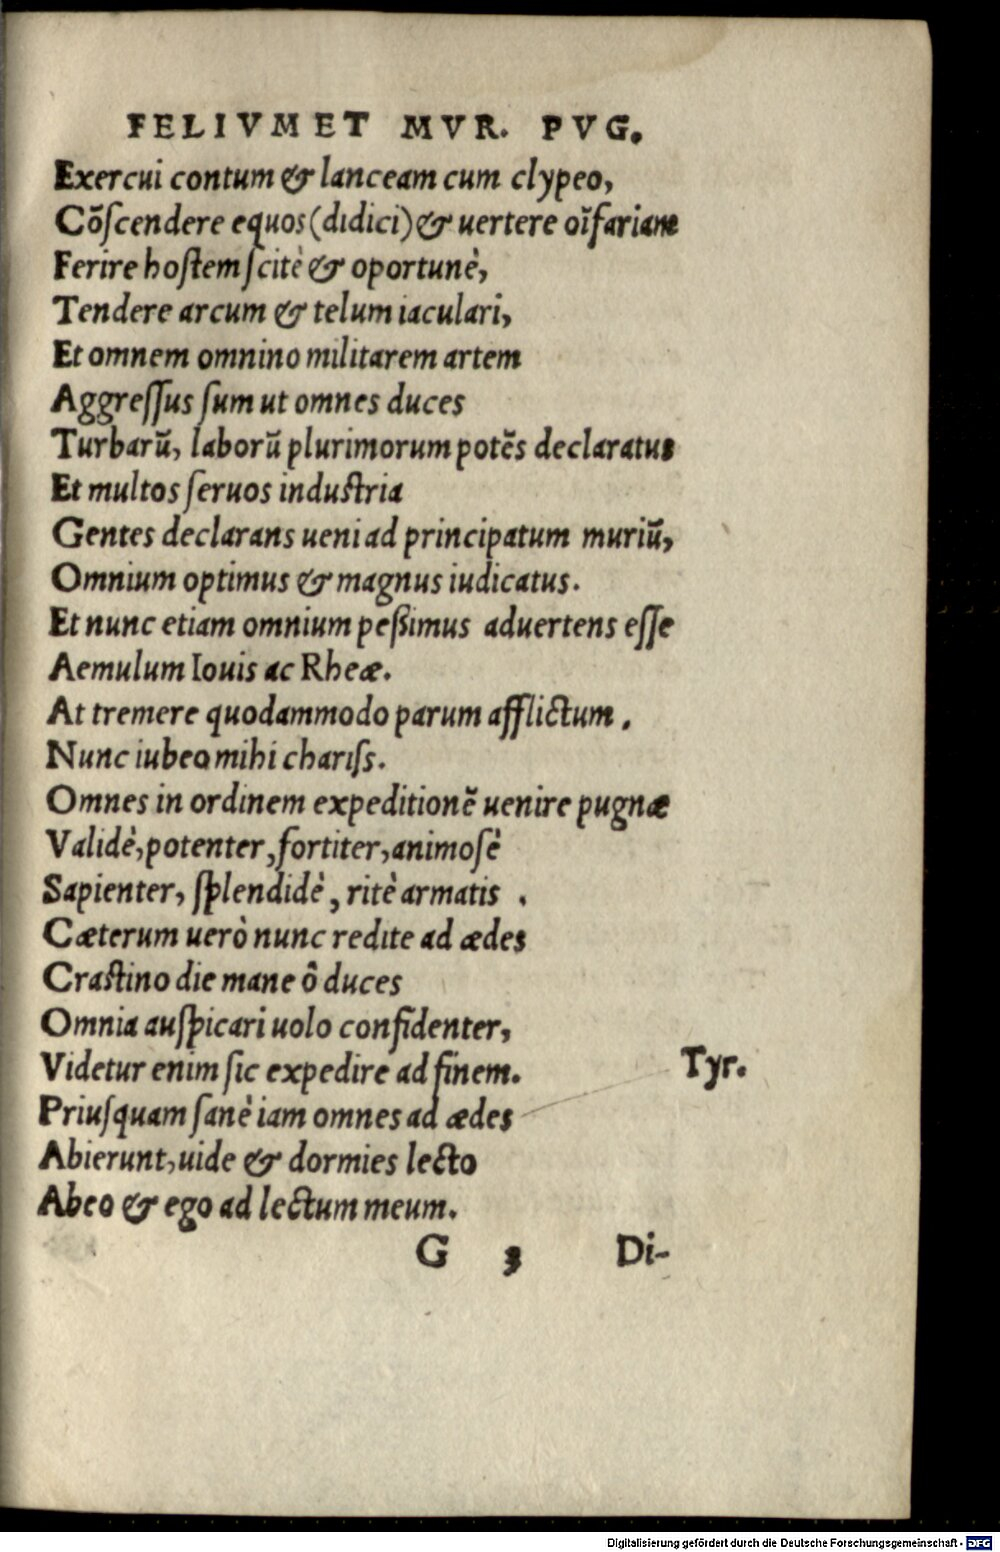 FELIVM ET MVR. PVG.
Exercui contum & lanceam cum clypeo,
Cõſcendere equos (didici) & uertere oĩfariam
Ferire hoſtem ſcitè & oportunè,
Tendere arcum & telum iaculari,
Et omnem omnino militarem artem
Aggreſſus ſum ut omnes duces
Turbarũ, laborũ plurimorum potẽs declaratus
Et multos ſeruos induſtria
Gentes declarans ueni ad principatum muriũ,
Omnium optimus & magnus iudicatus.
Et nunc etiam omnium peßimus aduertens eſſe
Aemulum Iouis ac Rheæ.
At tremere quodammodo parum afflictum.
Nunc iubeo mihi chariſſ.
Omnes in ordinem expeditionẽ uenire pugnæ
Validè, potenter, fortiter, animoſè
Sapienter, ſplendidè, ritè armatis.
Cæterum uerò nunc redite ad ædes
Craſtino die mane ô duces
Omnia auſpicari uolo confidenter,
Videtur enim ſic expedire ad finem.
Tyr.
Priuſquam ſanè iam omnes ad ædes
Abierunt, uide & dormies lecto
Abeo & ego ad lectum meum.
G 3 Di-
Digitalisierung gefördert durch die Deutsche Forschungsgemeinschaft - DFG